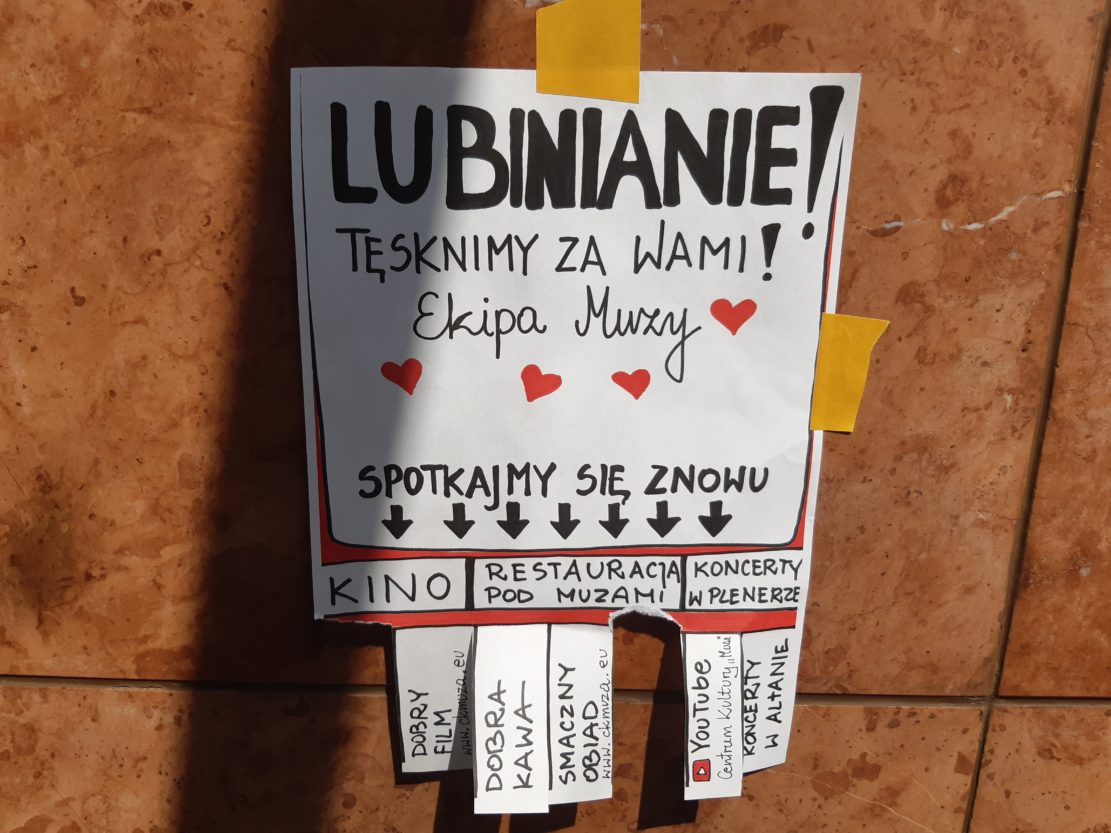 LUBINIANIE!
TĘSKNIMY ZA WAMI!
Ekipa Muzy
SPOTKAJMY SIĘ ZNOWU
KINO
RESTAURACJA
POD MUZAMI
KONCERTY
W PLENERZE
DOBRY
FILM
www.ckmuza.eu
DOBRA
KAWA
SMACZNY
OBIAD
www.ckmuza.eu
YouTube
Centrum Kultury „Muza"
KONCERTY
W ALTANIE